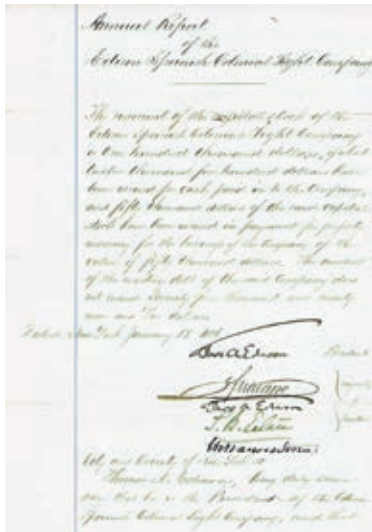 Annual Report
of the
Edison Spanish Colonial Light Company
The amount of the capital stock of the
Edison Spanish Colonial Light Company
is One hundred thousand dollars, of which
twelve thousand five hundred dollars have
been issued for cash paid in to the Company,
and fifty thousand dollars of the said capital
stock have been issued in payment for property
necessary for the business of the Company of the
value of fifty thousand dollars. The amount
of the existing debts of the said Company does
not exceed Seventy four thousand, and ninety
dollars
Dated New York January 18
Thos A Edison
President
Thos A Edison
City and County of New York
Thomas A. Edison, being duly sworn
says that he is the President of the Edison
Spanish Colonial Light Company, and that